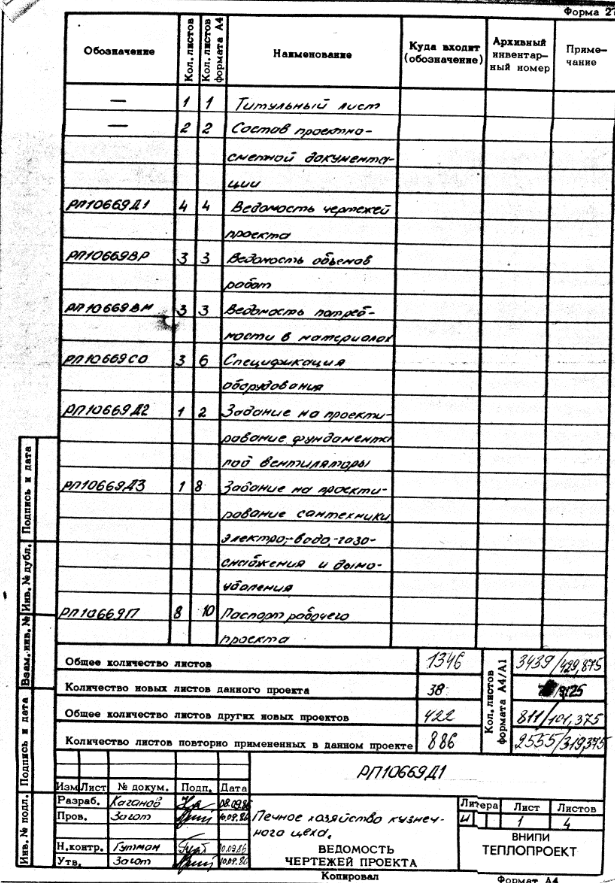 Форма 27
Обозначение Кол. листов Кол. листов формата А4 Наименование Куда входит (обозначение) Архивный инвентарный номер Примечание
— 1 1 Титульный лист
— 2 2 Состав проектно-
сметной документа-
ции
РП10669Д1 4 4 Ведомость чертежей
проекта
РП10669ВР 3 3 Ведомость объемов
работ
РП10669ВМ 3 3 Ведомость потреб-
ности в материалах
РП10669СО 3 6 Спецификация
оборудования
РП10669Д2 1 2 Задание на проекти-
рование фундаментов
под вентиляторы
РП10669Д3 1 8 Задание на проекти-
рование сантехники
электро-, водо-, газо-
снабжения и дымо-
удаления
РП10669П 8 10 Паспорт рабочего
проекта
Общее количество листов 1346 Кол. листов формата А4/А1 3439/429,875
Количество новых листов данного проекта 38 /8125
Общее количество листов других новых проектов 422 811/101,375
Количество листов повторно примененных в данном проекте 886 2555/319,375
РП10669Д1
Изм Лист № докум. Подп. Дата
Разраб. Каганов 08.09.86
Пров. Загот 10.09.86
Н.контр. Гутман 10.09.86
Утв. Загот 10.09.86
Печное хозяйство кузнеч-
ного цеха.
ВЕДОМОСТЬ
ЧЕРТЕЖЕЙ ПРОЕКТА
Литера Лист Листов
И 1 4
ВНИПИ
ТЕПЛОПРОЕКТ
Копировал Формат А4
Инв. № подл. Подпись и дата Взам. инв. № Инв. № дубл. Подпись и дата